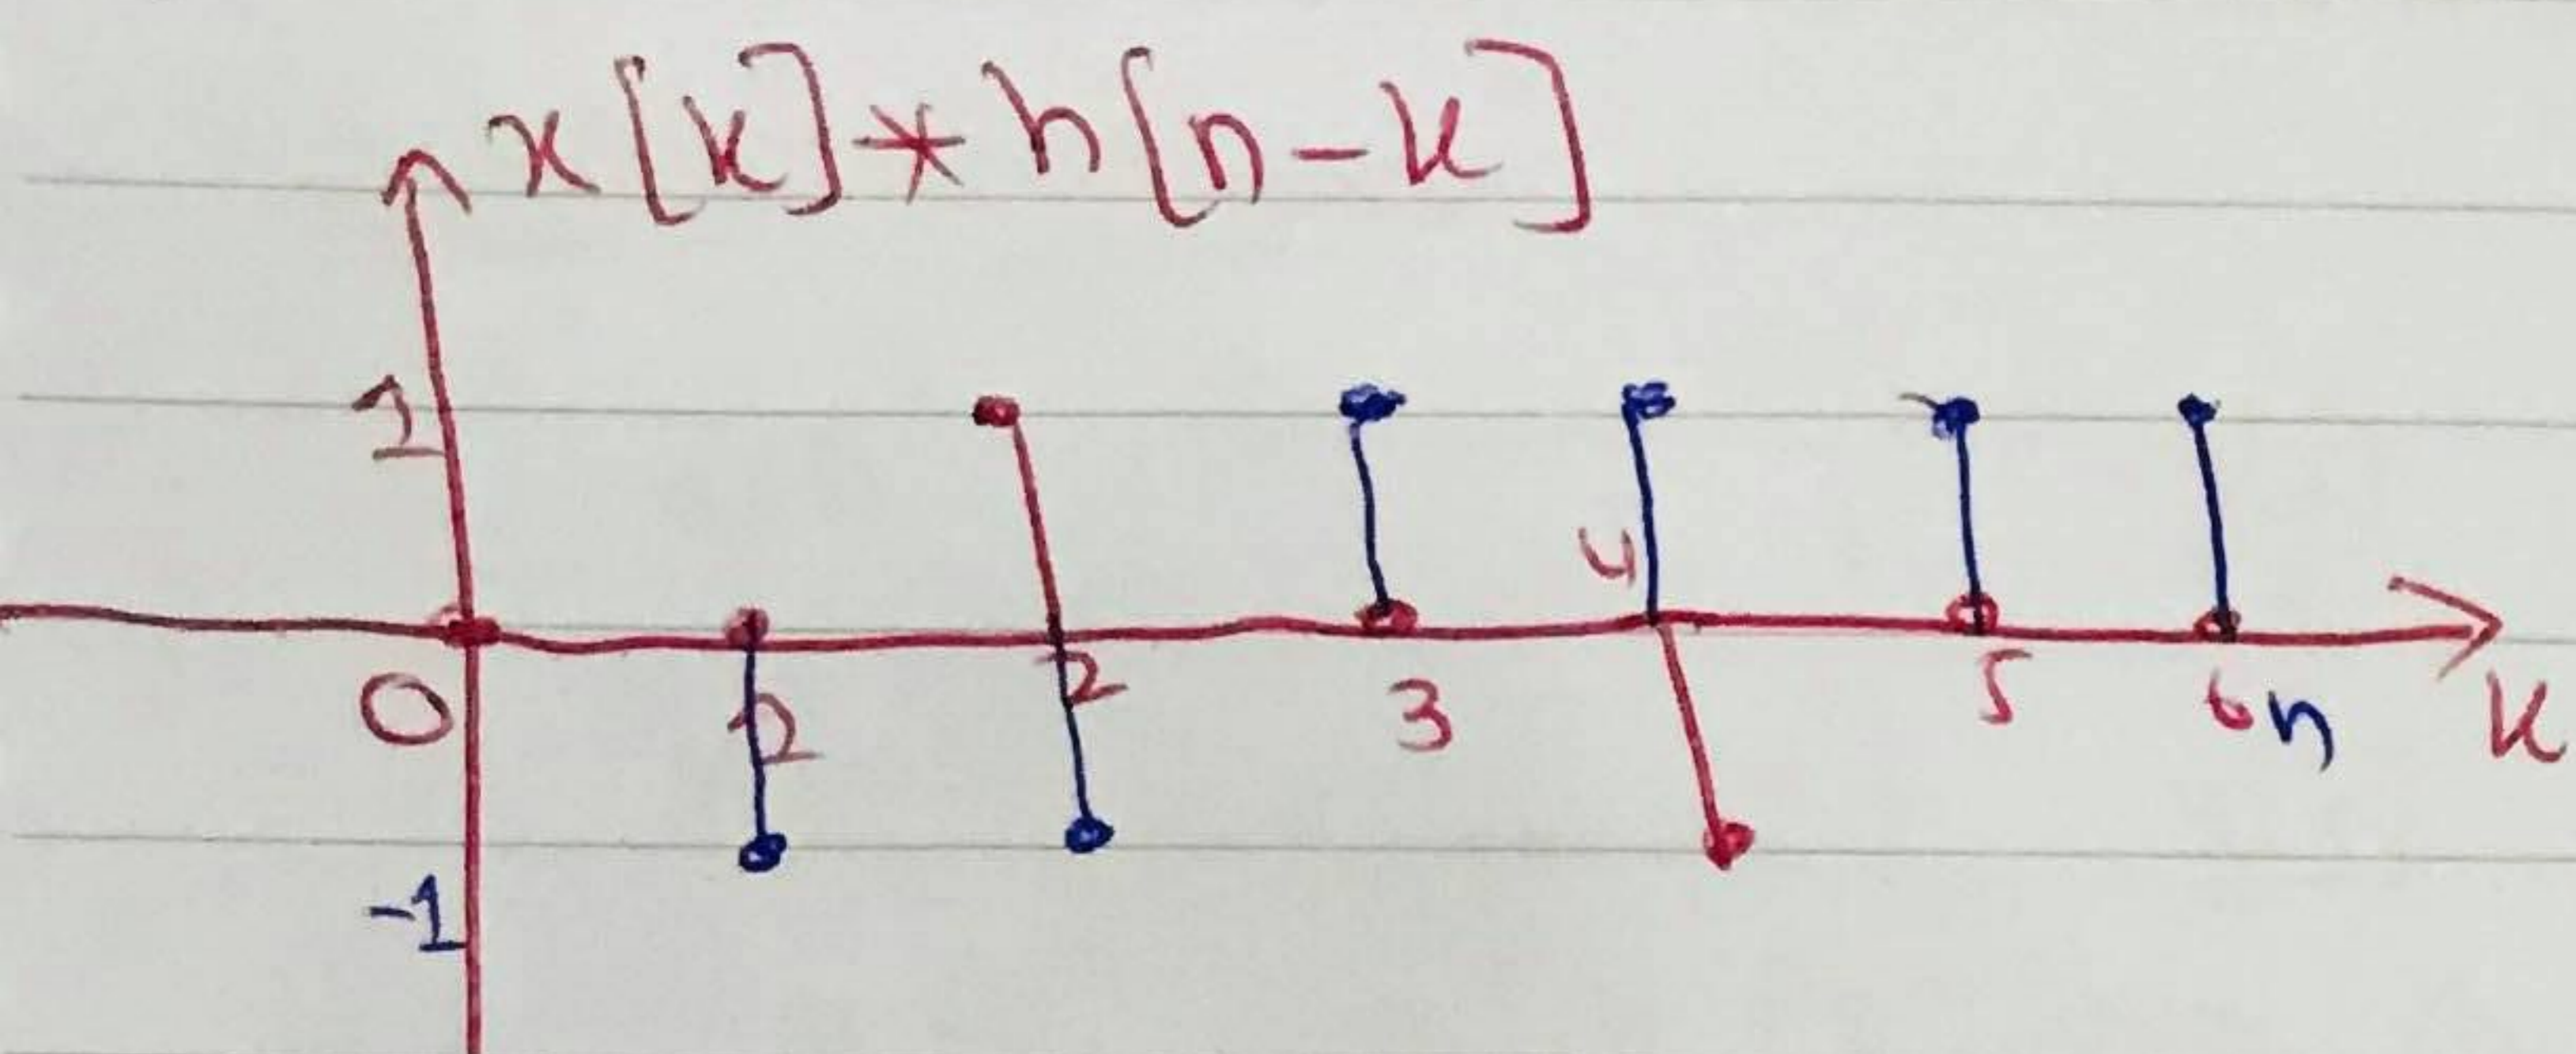 x[k]*h[n-k]
1
4
0 1 2 3 5 6 n k
-1